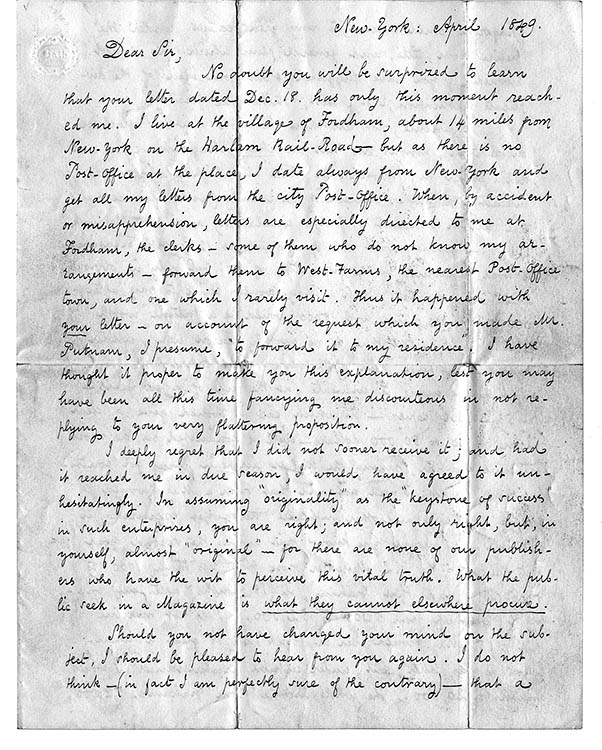 New-York: April 1849.
Dear Sir,
No doubt you will be surprized to learn
that your letter dated Dec. 18. has only this moment reach-
ed me. I live at the village of Fordham, about 14 miles from
New-York on the Harlam Rail-Road — but as there is no
Post-Office at the place, I date always from New-York and
get all my letters from the city Post-Office. When, by accident
or misapprehension, letters are especially directed to me at
Fordham, the clerks — some of them who do not know my ar-
rangements — forward them to West-Farms, the nearest Post-Office
town, and one which I rarely visit. Thus it happened with
your letter — on account of the request which you made Mr.
Putnam, I presume, "to forward it to my residence". I have
thought it proper to make you this explanation, lest you may
have been all this time fancying me discourteous in not re-
plying to your very flattering proposition.
I deeply regret that I did not sooner receive it; and had
it reached me in due season, I would have agreed to it un-
hesitatingly. In assuming "originality" as the "keystone of success
in such enterprises, you are right; and not only right, but, in
yourself, almost "original" — for there are none of our publish-
ers who have the wit to perceive this vital truth. What the pub-
lic seek in a Magazine is what they cannot elsewhere procure.
Should you not have changed your mind on the sub-
ject, I should be pleased to hear from you again. I do not
think — (in fact I am perfectly sure of the contrary) — that a